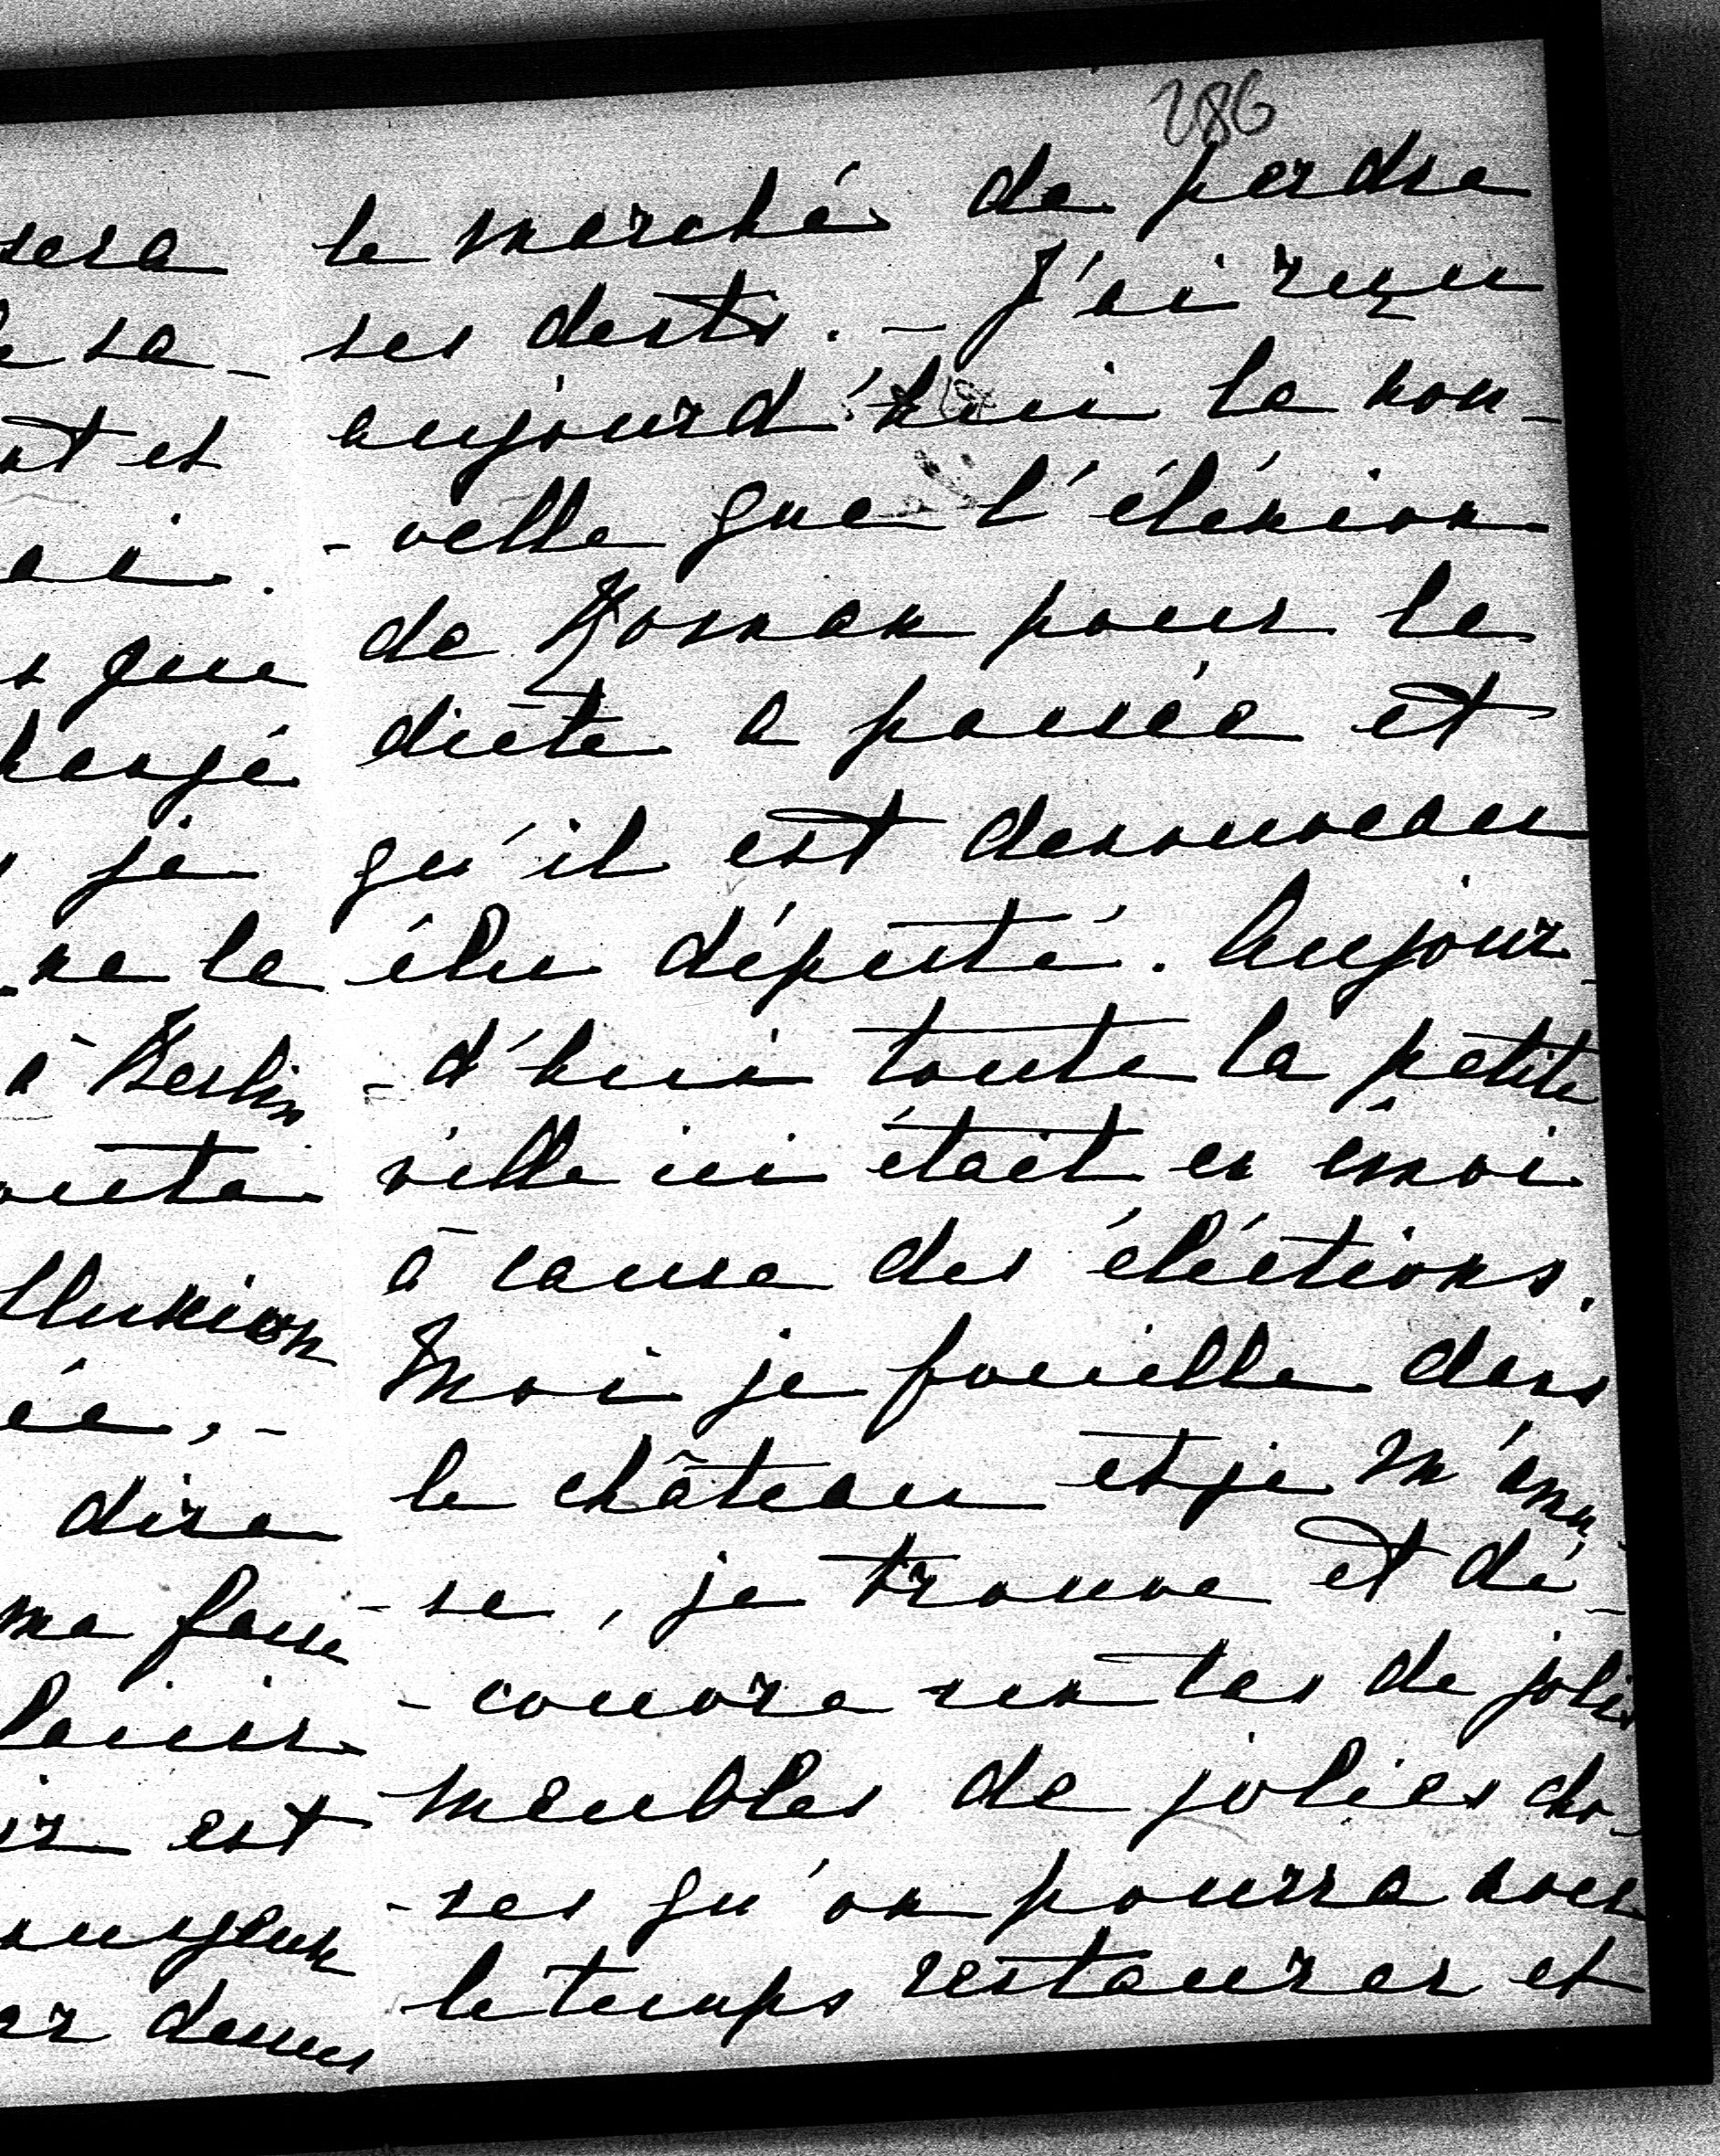 286
sera
sa-
et
que
je
ne le
à Berlin
dire
ma
est
le marché de perdre
ses dents. - J'ai reçu
aujourd'hui la nou-
-velle que l'élexion
de Roman pour la
diète a passée et
qu'il est denouveau
élu député. Aujour-
-d'hui toute la petite
ville ici était en émoi
à cause des éléctions.
Moi je fouielle dans
le château et je m'amu
-se, je trouve et dé-
-couvre un tas de jolis
meubles de jolies cho-
-ses qu'on pourra avec
le temps restaurer et